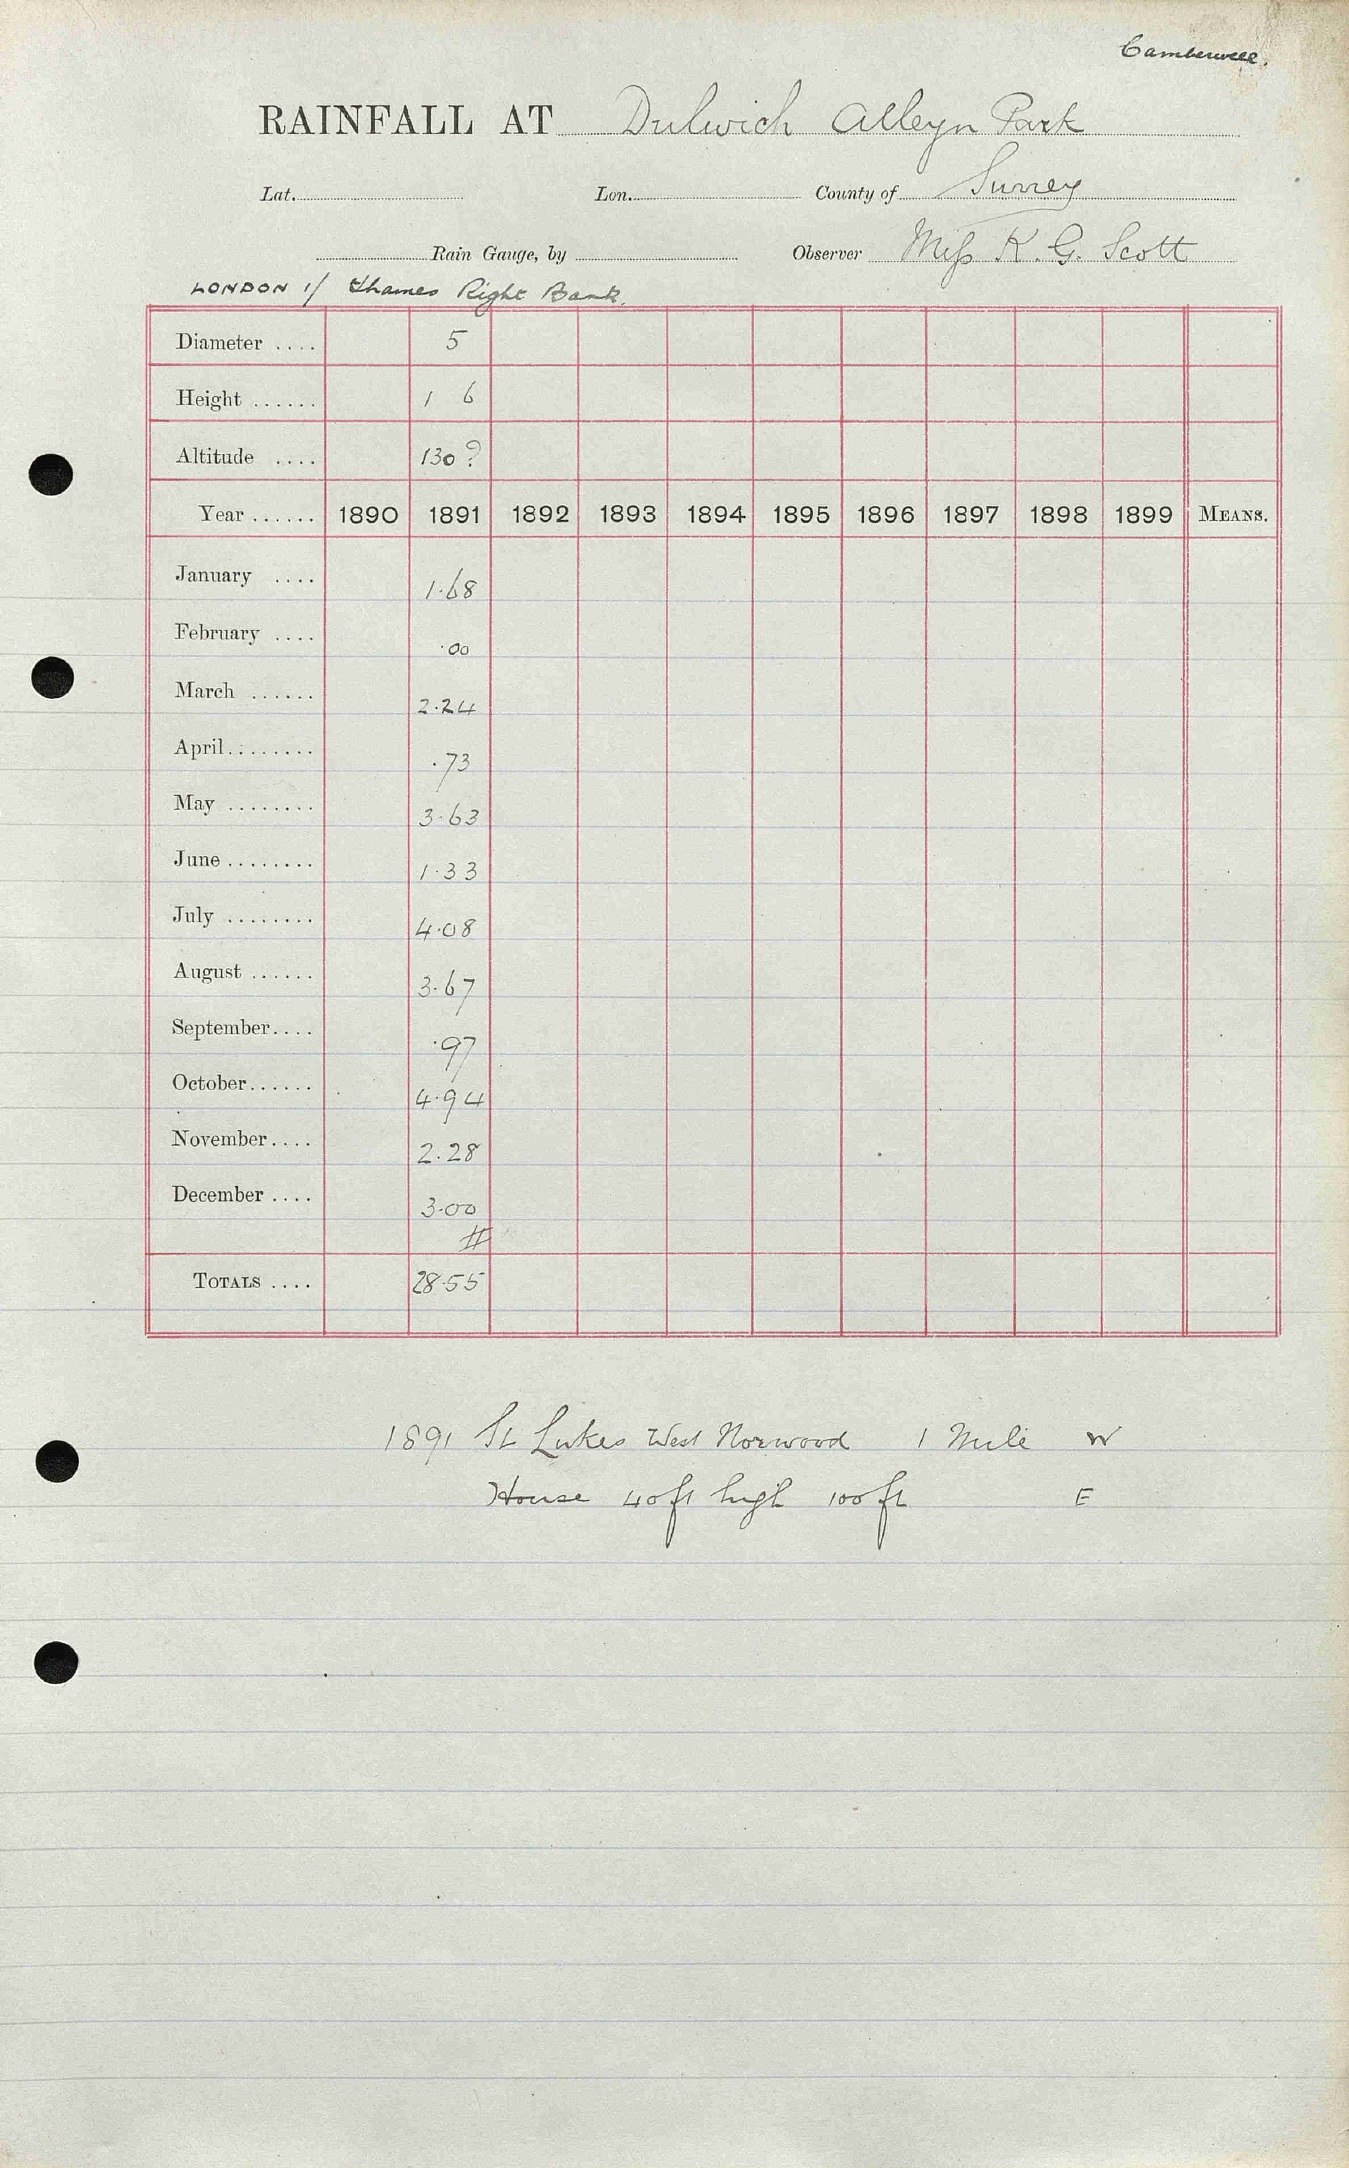 Camberwell.
RAINFALL AT Dulwich Alleyn Park
Lat. Lon. County of Surrey
Rain Gauge, by Observer Miss K. G. Scott
LONDON 1/ Thames Right Bank.
Diameter .... 5
Height ...... 1 6
Altitude .... 130?
Year ...... 1890 1891 1892 1893 1894 1895 1896 1897 1898 1899 MEANS.
January .... 1.68
February .... .00
March ...... 2.24
April ........ .73
May ........ 3.63
June ........ 1.33
July ........ 4.08
August ...... 3.67
September.... .97
October...... 4.94
November.... 2.28
December .... 3.00
#
TOTALS .... 28.55
1891 St Lukes West Norwood 1 Mile W
House 40ft high 100 ft E